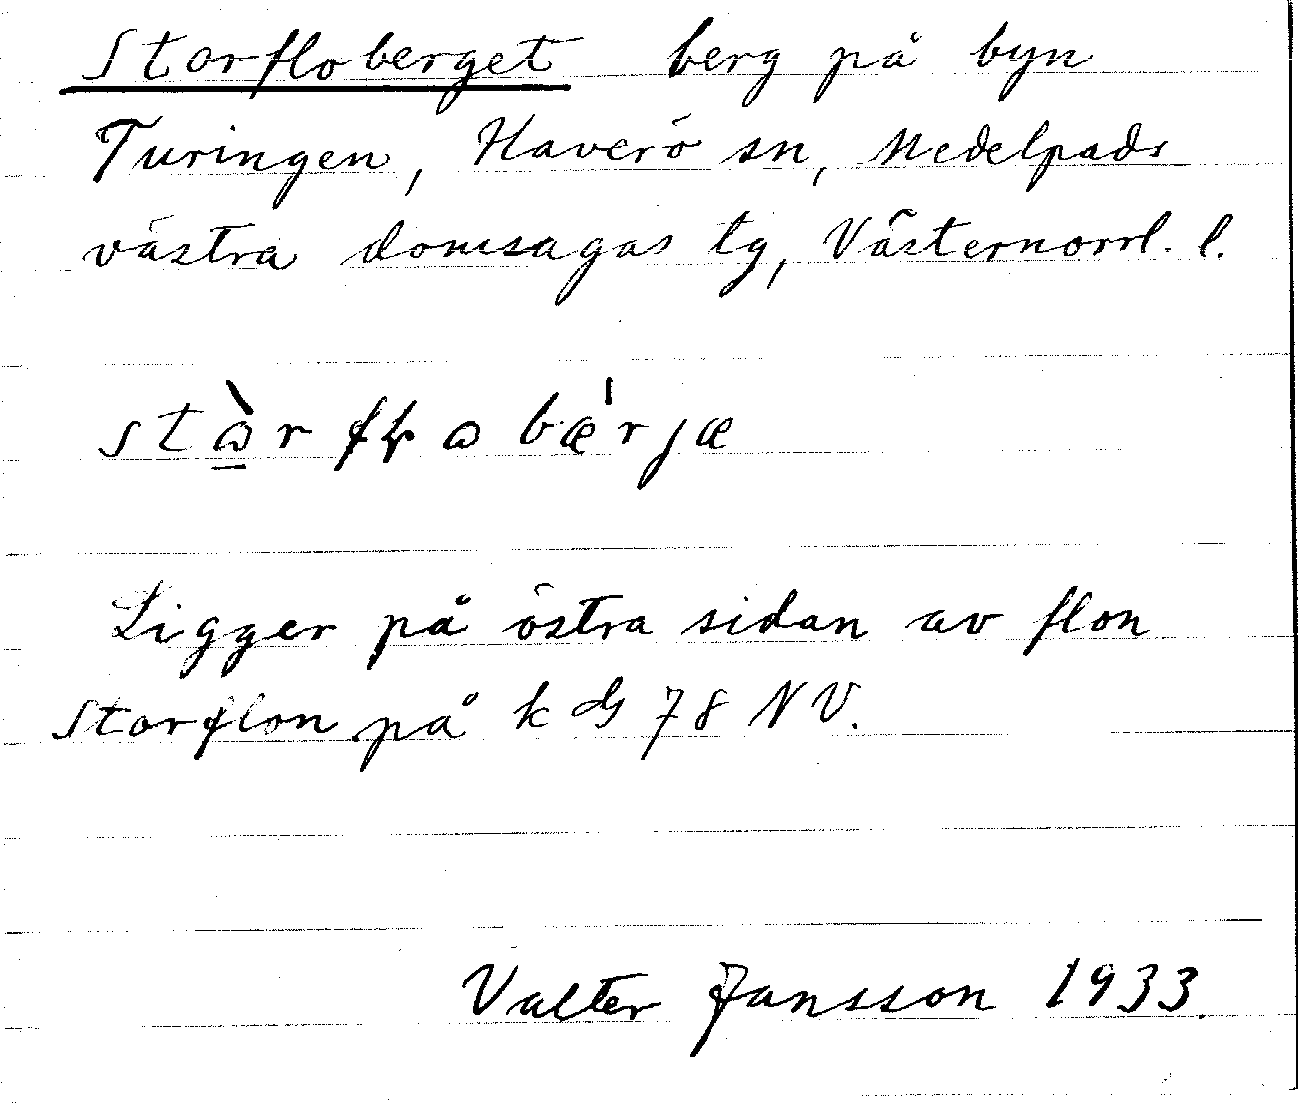 Storfloberget berg på byn
Turingen, Haverö sn, Medelpads
västra domsagas tg, Västernorrl. l.
Ligger på östra sidan av flon
Storflon på k G 78 NV.
Valter Jansson 1933.